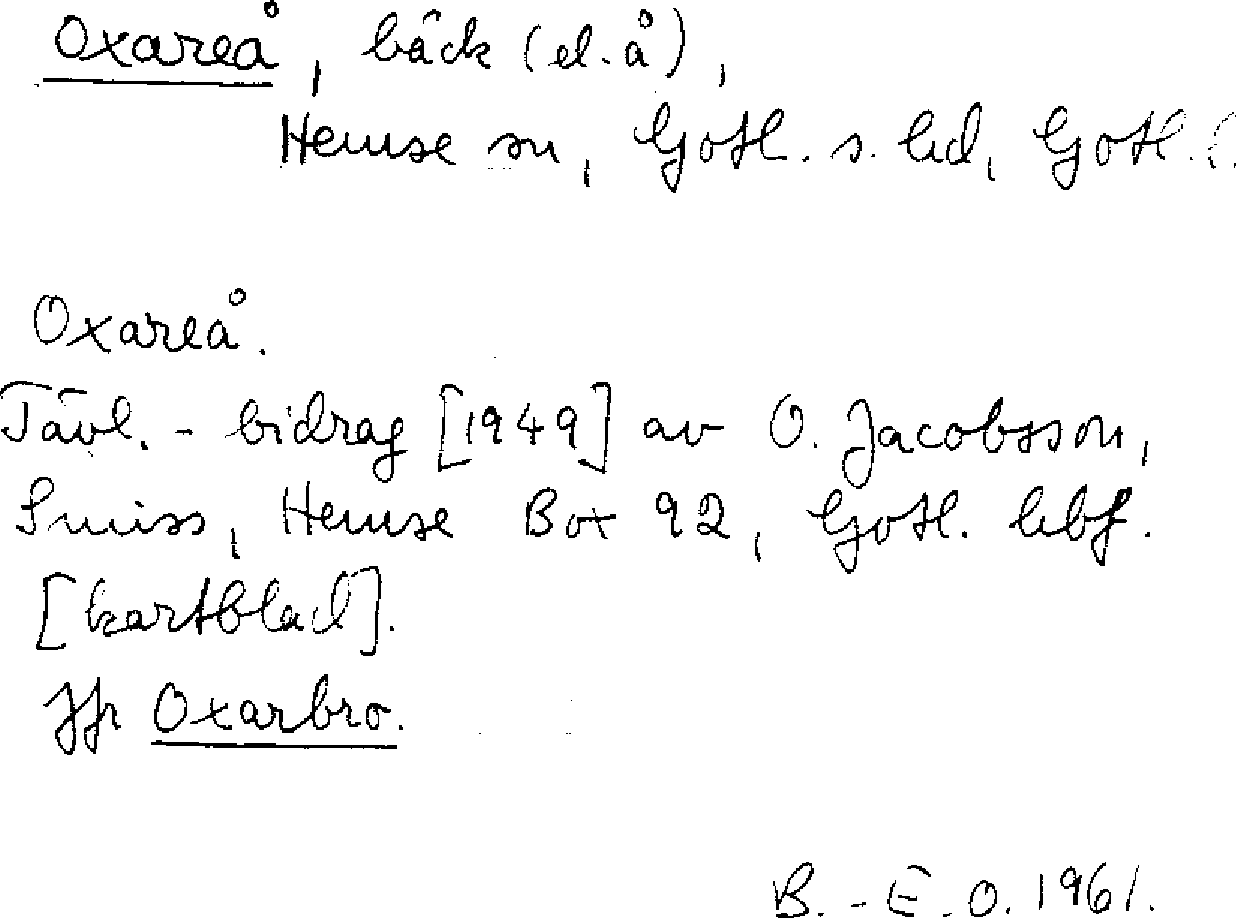 Oxareå, bäck (el. å),
Hemse sn, Gotl. s. hd, Gotl. l.
Oxareå.
Tävl.-bidrag [1949] av O. Jacobsson,
Smiss, Hemse Box 92, Gotl. hbf.
[kartblad].
Jfr Oxarbro.
B.-E.O. 1961.